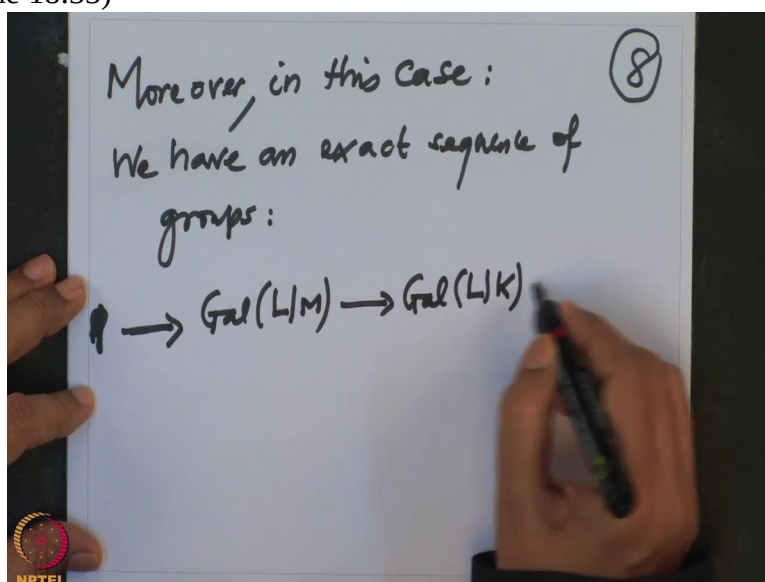 Moreover, in this case:
8
We have an exact sequence of
groups:
1 → Gal(L|M) → Gal(L|K)
NPTEL